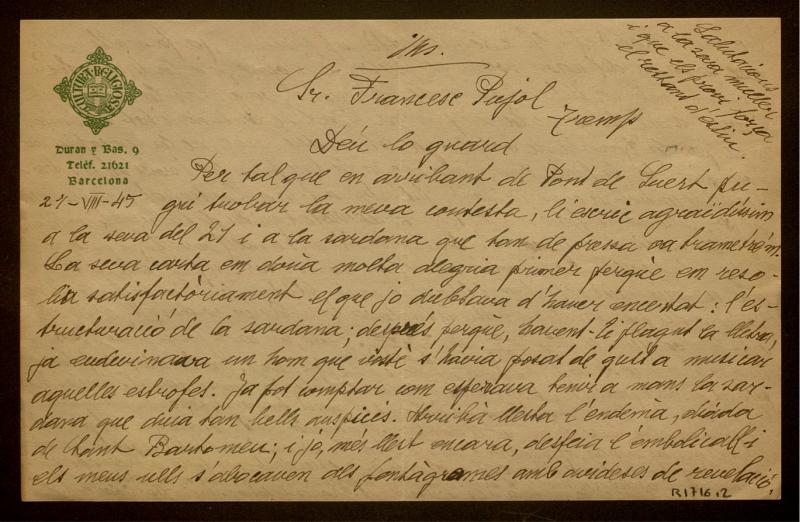 ihs.
Sr. Francesc Pujol
Tremp
Salutacions
a la seva muller
i que els provi força
el restant d'estiu.
CULTURA RELIGIOSA
Duran y Bas, 9
Teléf. 21621
Barcelona
27-VIII-45
Déu lo guard
Per tal que en arribant de Pont de Suert pu-
gui trobar la meva contesta, li escric agraïdíssim
a la seva del 21 i a la sardana que tan de pressa va trametre'm.
La seva carta em dóna molta alegria primer perquè em reso-
lia satisfactòriament el que jo dubtava d'haver encertat: l'es-
tructuració de la sardana; després perquè, havent-li plagut la lletra,
ja endevinava un hom que vostè s'havia posat de gust a musicar
aquelles estrofes. Ja pot comptar com esperava tenir a mans la sar-
dana que duia tan bells auspicis. Arribà llesta l'endemà, diada
de Sant Bartomeu; i jo, més llest encara, desfeia l'embolicall i
els meus ulls s'abocaven als pentàgrames amb avideses de revelació.
R1716,2